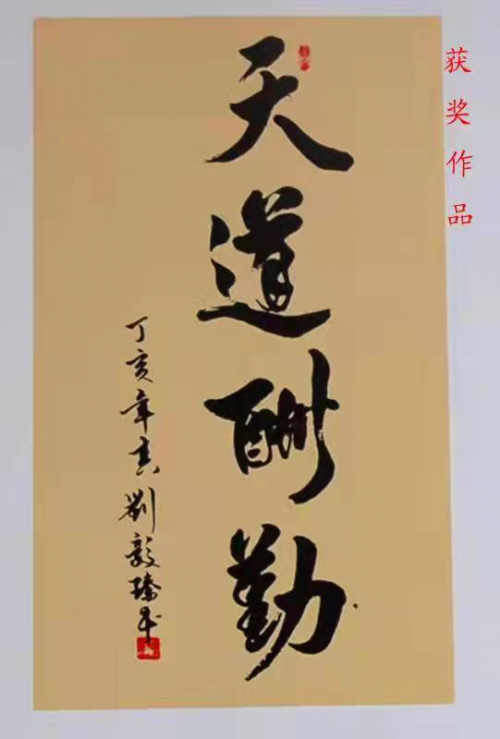 获奖作品
天道酬勤
丁亥年春刘毅臻书